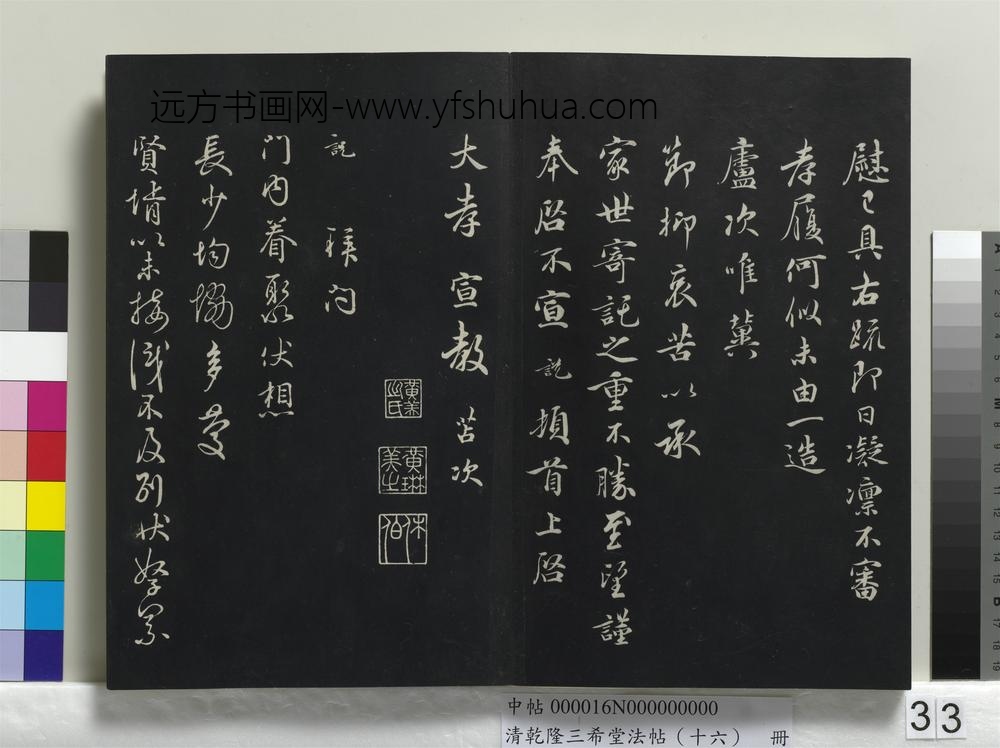 远方书画网-www.yfshuhua.com
慰已具右疏即日凝凛不審
孝履何似未由一造
廬次唯冀
節抑哀苦以承
家世寄託之重不勝至望謹
奉啓不宣 說 頓首上啓
大孝 宣教 苫次
說 拜问
門内眷聚伏想
長少均協多慶
賢壻以未接識不及列状
黄美之氏
黄琳美之
休伯
中帖 000016N000000000
清乾隆三希堂法帖（十六） 冊
33